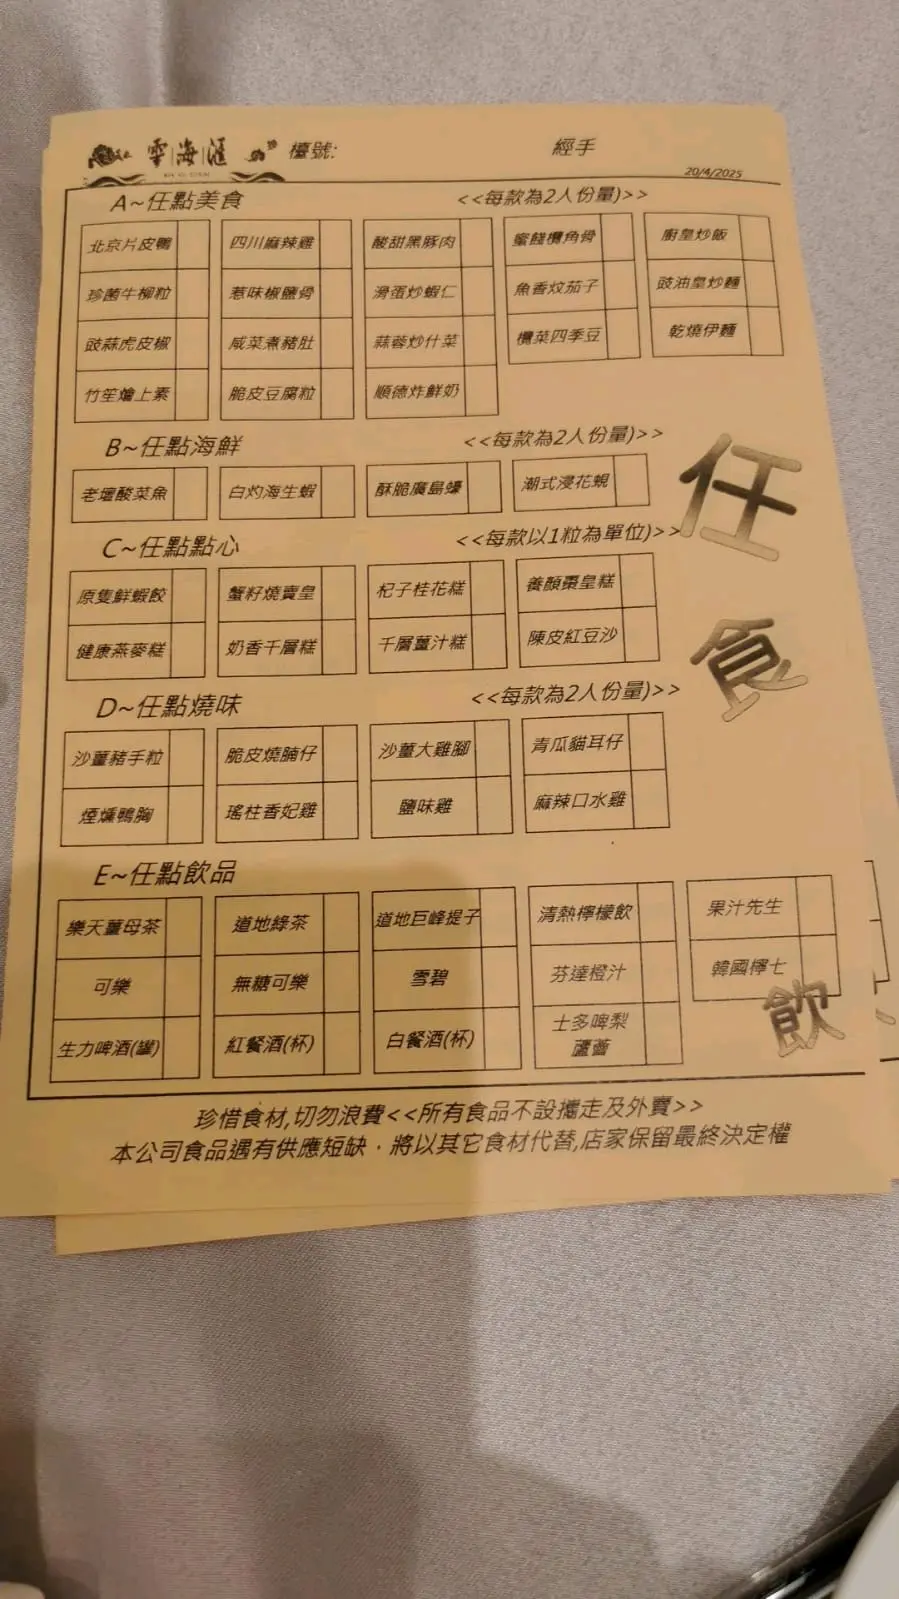 雲海滙 檯號: 經手
20/4/2025
A~任點美食 <<每款為2人份量)>>
北京片皮鴨 四川麻辣雞 酸甜黑豚肉 蜜餞欖角骨 廚皇炒飯
珍菌牛柳粒 惹味椒鹽骨 滑蛋炒蝦仁 魚香炆茄子 豉油皇炒麵
豉蒜虎皮椒 咸菜煮豬肚 蒜蓉炒什菜 欖菜四季豆 乾燒伊麵
竹笙燴上素 脆皮豆腐粒 順德炸鮮奶
B~任點海鮮 <<每款為2人份量)>>
老壇酸菜魚 白灼海生蝦 酥脆廣島蠔 潮式浸花蜆
C~任點點心 <<每款以1粒為單位)>>
原隻鮮蝦餃 蟹籽燒賣皇 杞子桂花糕 養顏棗皇糕
健康燕麥糕 奶香千層糕 千層薑汁糕 陳皮紅豆沙
D~任點燒味 <<每款為2人份量)>>
沙薑豬手粒 脆皮燒腩仔 沙薑大雞腳 青瓜貓耳仔
煙燻鴨胸 瑤柱香妃雞 鹽味雞 麻辣口水雞
E~任點飲品
樂天薑母茶 道地綠茶 道地巨峰提子 清熱檸檬飲 果汁先生
可樂 無糖可樂 雪碧 芬達橙汁 韓國檸七
生力啤酒(罐) 紅餐酒(杯) 白餐酒(杯) 士多啤梨
蘆薈
任
食
飲
珍惜食材,切勿浪費<<所有食品不設攜走及外賣>>
本公司食品遇有供應短缺，將以其它食材代替,店家保留最終決定權